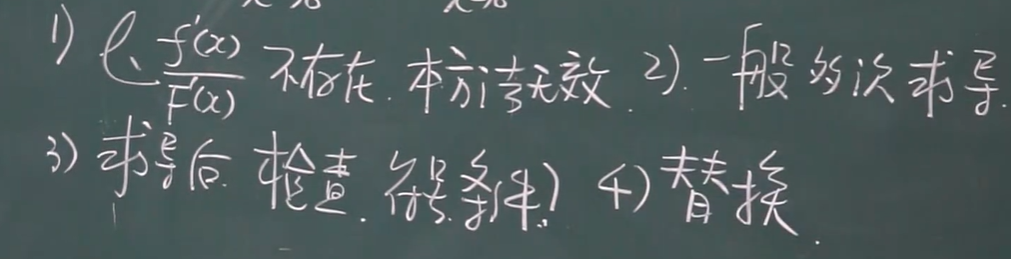 1) l. f'(x)/F'(x) 不存在. 本方法无效. 2). 一般多次求导.
3) 求导后. 检查. 条件) 4) 替换.